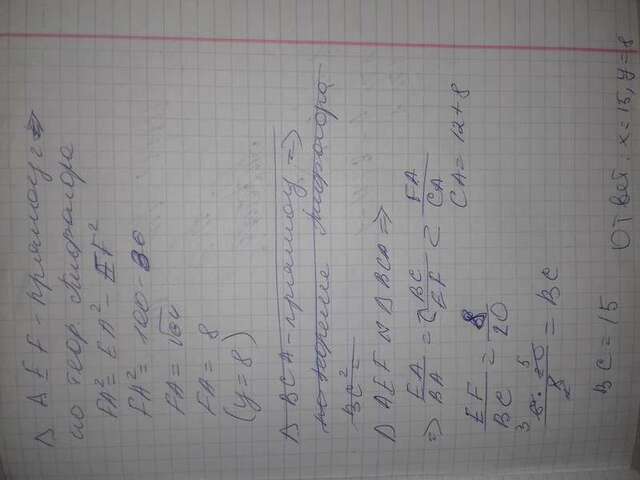 Δ AEF - прямоуг ⇒
по теор Пифагора
FA² = EA² - EF²
FA² = 100 - 36
FA = √64
FA = 8
(y=8)
Δ BCA - прямоуг ⇒
по теореме Пифагора
BC² =
Δ AEF ∾ Δ BCA ⇒
⇒ EA/BA = BC/EF = FA/CA
CA = 12+8
EF/BC = 8/20
6·20/8 = BC
BC = 15
Ответ: x=15, y=8